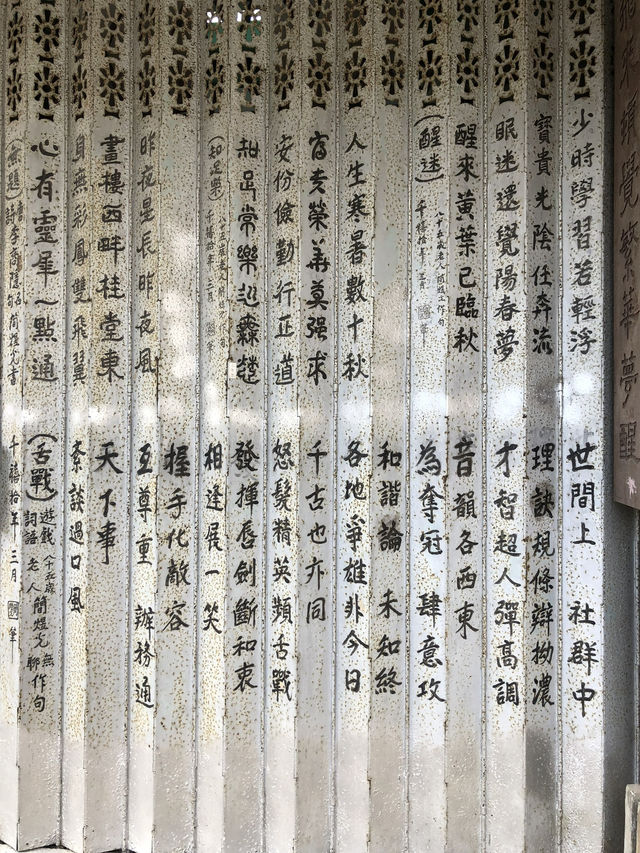 少時學習若輕浮
寶貴光陰任奔流
眠迷還覺陽春夢
醒來黃葉已臨秋
(醒迷) 千禧拾年三月
人生寒暑數十秋
富贵榮華莫强求
安份儉勤行正道
知足常樂
(知足樂) 千禧拾年三月
昨夜星辰昨夜風
畫樓西畔桂堂東
身無彩鳳雙飛翼
心有靈犀一點通
(無題)詩 李商隱 簡煜光書
千禧拾年三月 筆
世間上 社群中
理訣規條辯拗濃
才智超人彈高調
音韻各西東
為奪冠 肆意攻
和諧論 未知終
各地爭雄非今日
千古也亦同
怒髮精英類舌戰
發揮唇劍斷和衷
相逢展一笑
握手化敵容
互尊重 辦務通
天下事
紊談過口風
(舌戰) 遊戲詞語 八十五歲老人簡煜光 作句
覺繁華夢醒